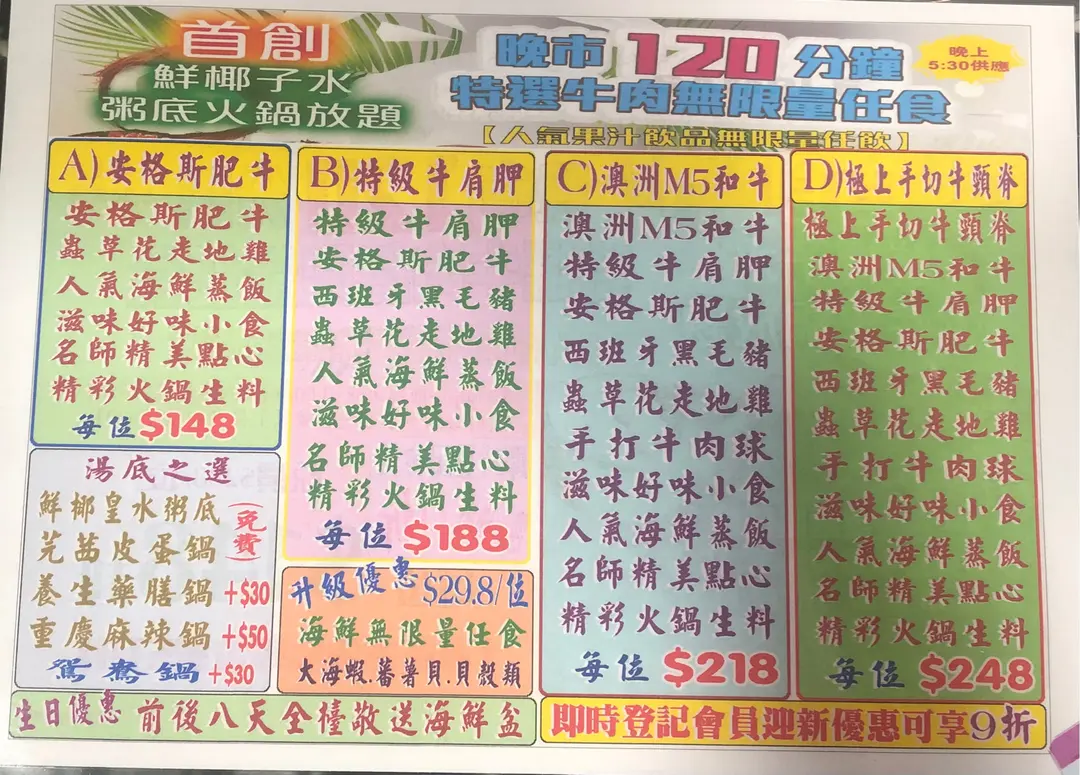 首創
鮮椰子水
粥底火鍋放題
晚市120分鐘
特選牛肉無限量任食
【人氣果汁飲品無限量任飲】
晚上
5:30供應
A)安格斯肥牛
安格斯肥牛
蟲草花走地雞
人氣海鮮蒸飯
滋味好味小食
名師精美點心
精彩火鍋生料
每位$148
湯底之選
鮮椰皇水粥底
芫茜皮蛋鍋
(免費)
養生藥膳鍋+$30
重慶麻辣鍋+$50
鴛鴦鍋+$30
B)特級牛肩胛
特級牛肩胛
安格斯肥牛
西班牙黑毛豬
蟲草花走地雞
人氣海鮮蒸飯
滋味好味小食
名師精美點心
精彩火鍋生料
每位$188
升級優惠$29.8/位
海鮮無限量任食
大海蝦.蕃薯貝.貝殼類
C)澳洲M5和牛
澳洲M5和牛
特級牛肩胛
安格斯肥牛
西班牙黑毛豬
蟲草花走地雞
手打牛肉球
滋味好味小食
人氣海鮮蒸飯
名師精美點心
精彩火鍋生料
每位$218
D)極上手切牛頸脊
極上手切牛頸脊
澳洲M5和牛
特級牛肩胛
安格斯肥牛
西班牙黑毛豬
蟲草花走地雞
手打牛肉球
滋味好味小食
人氣海鮮蒸飯
名師精美點心
精彩火鍋生料
每位$248
生日優惠 前後八天全檯敬送海鮮盆
即時登記會員迎新優惠可享9折